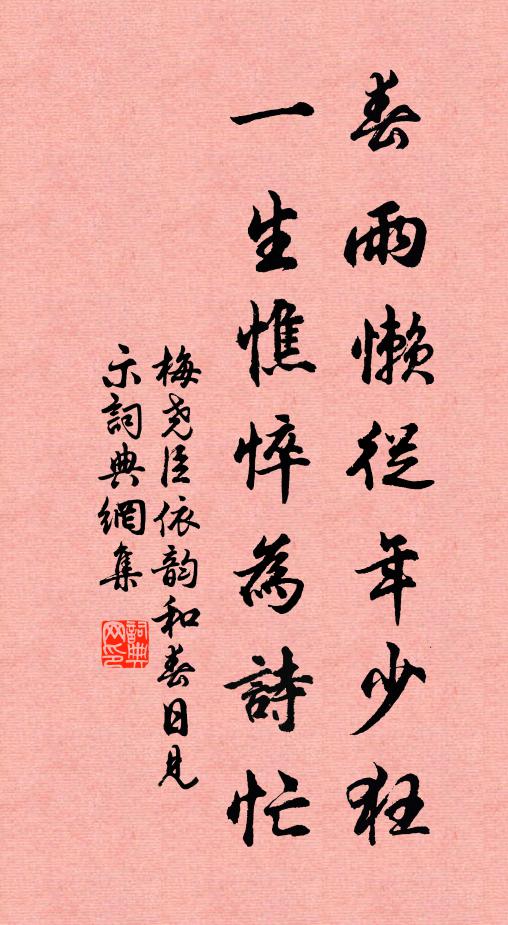 春雨懶從年少狂
一生憔悴為詩忙
梅堯臣依韵和春日見
示詞典網集
詞典网印